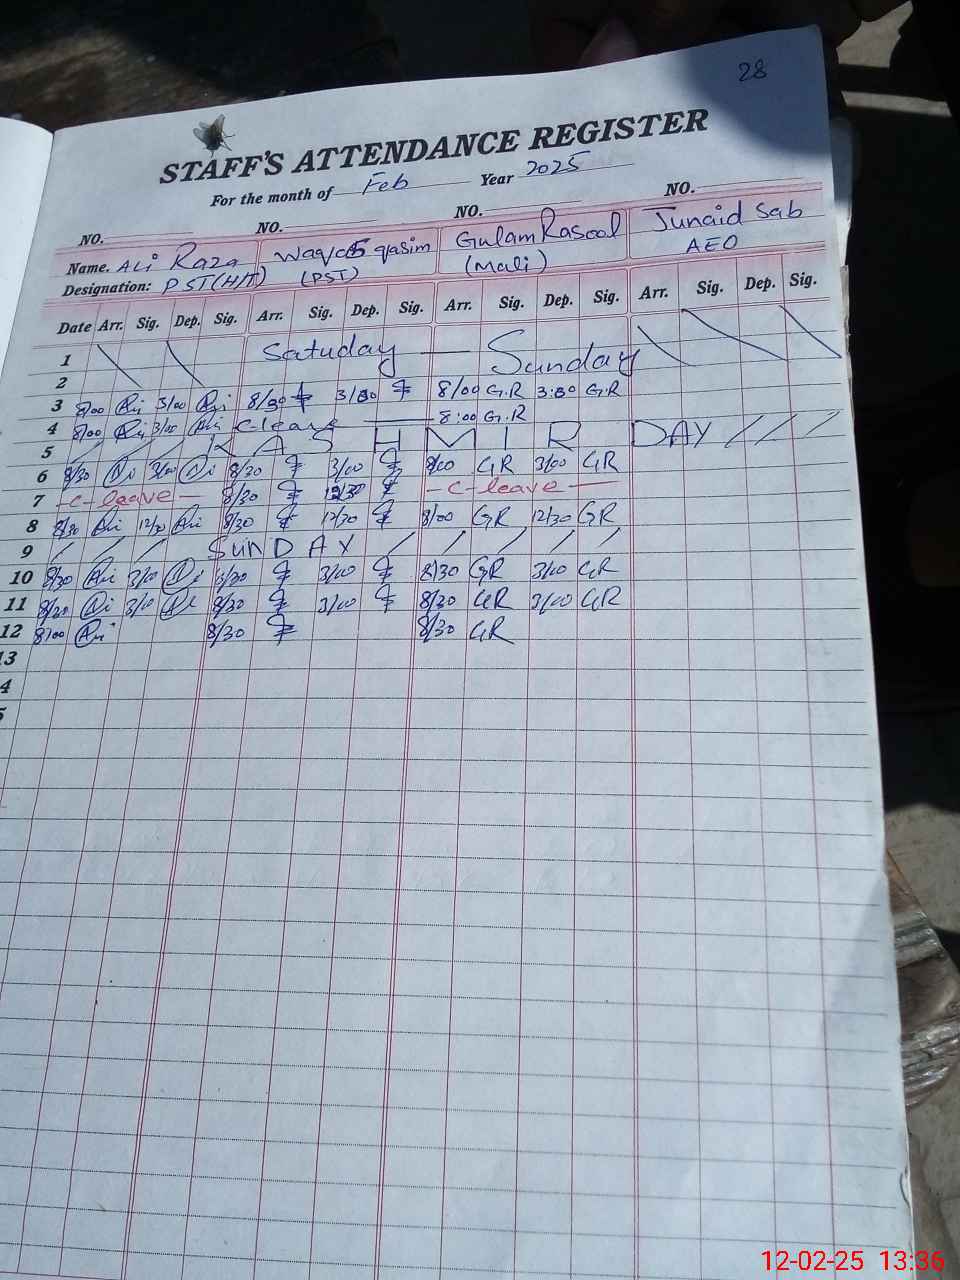 28
STAFF'S ATTENDANCE REGISTER
For the month of Feb Year 2025
NO. NO. NO. NO.
Name. ALi Raza Waqas qasim Gulam Rasool Junaid Sab
Designation: PST(H/T) (PST) (Mali) AEO
Date Arr. Sig. Dep. Sig. Arr. Sig. Dep. Sig. Arr. Sig. Dep. Sig. Arr. Sig. Dep. Sig.
1 Satuday — Sunday
2
3 8/00 Ali 3/00 Ali 8/30 3/00 8/00 G.R 3:00 G.R
4 8/00 Ali 3/00 Ali Cleave 8:00 G.R
5 KASHMIR DAY
6 8/30 Ali 3/00 Ali 8/30 3/00 8/00 GR 3/00 GR
7 -C-leave- 8/30 12/30 -C-leave-
8 8/30 Ali 12/30 Ali 8/30 12/30 8/00 GR 12/30 GR
9 SUNDAY
10 8/30 Ali 3/00 Ali 8/30 3/00 8/30 GR 3/00 GR
11 8/30 Ali 3/00 Ali 8/30 3/00 8/30 GR 3/00 GR
12 8/00 Ali 8/30 8/30 GR
13
4
5
12-02-25 13:36